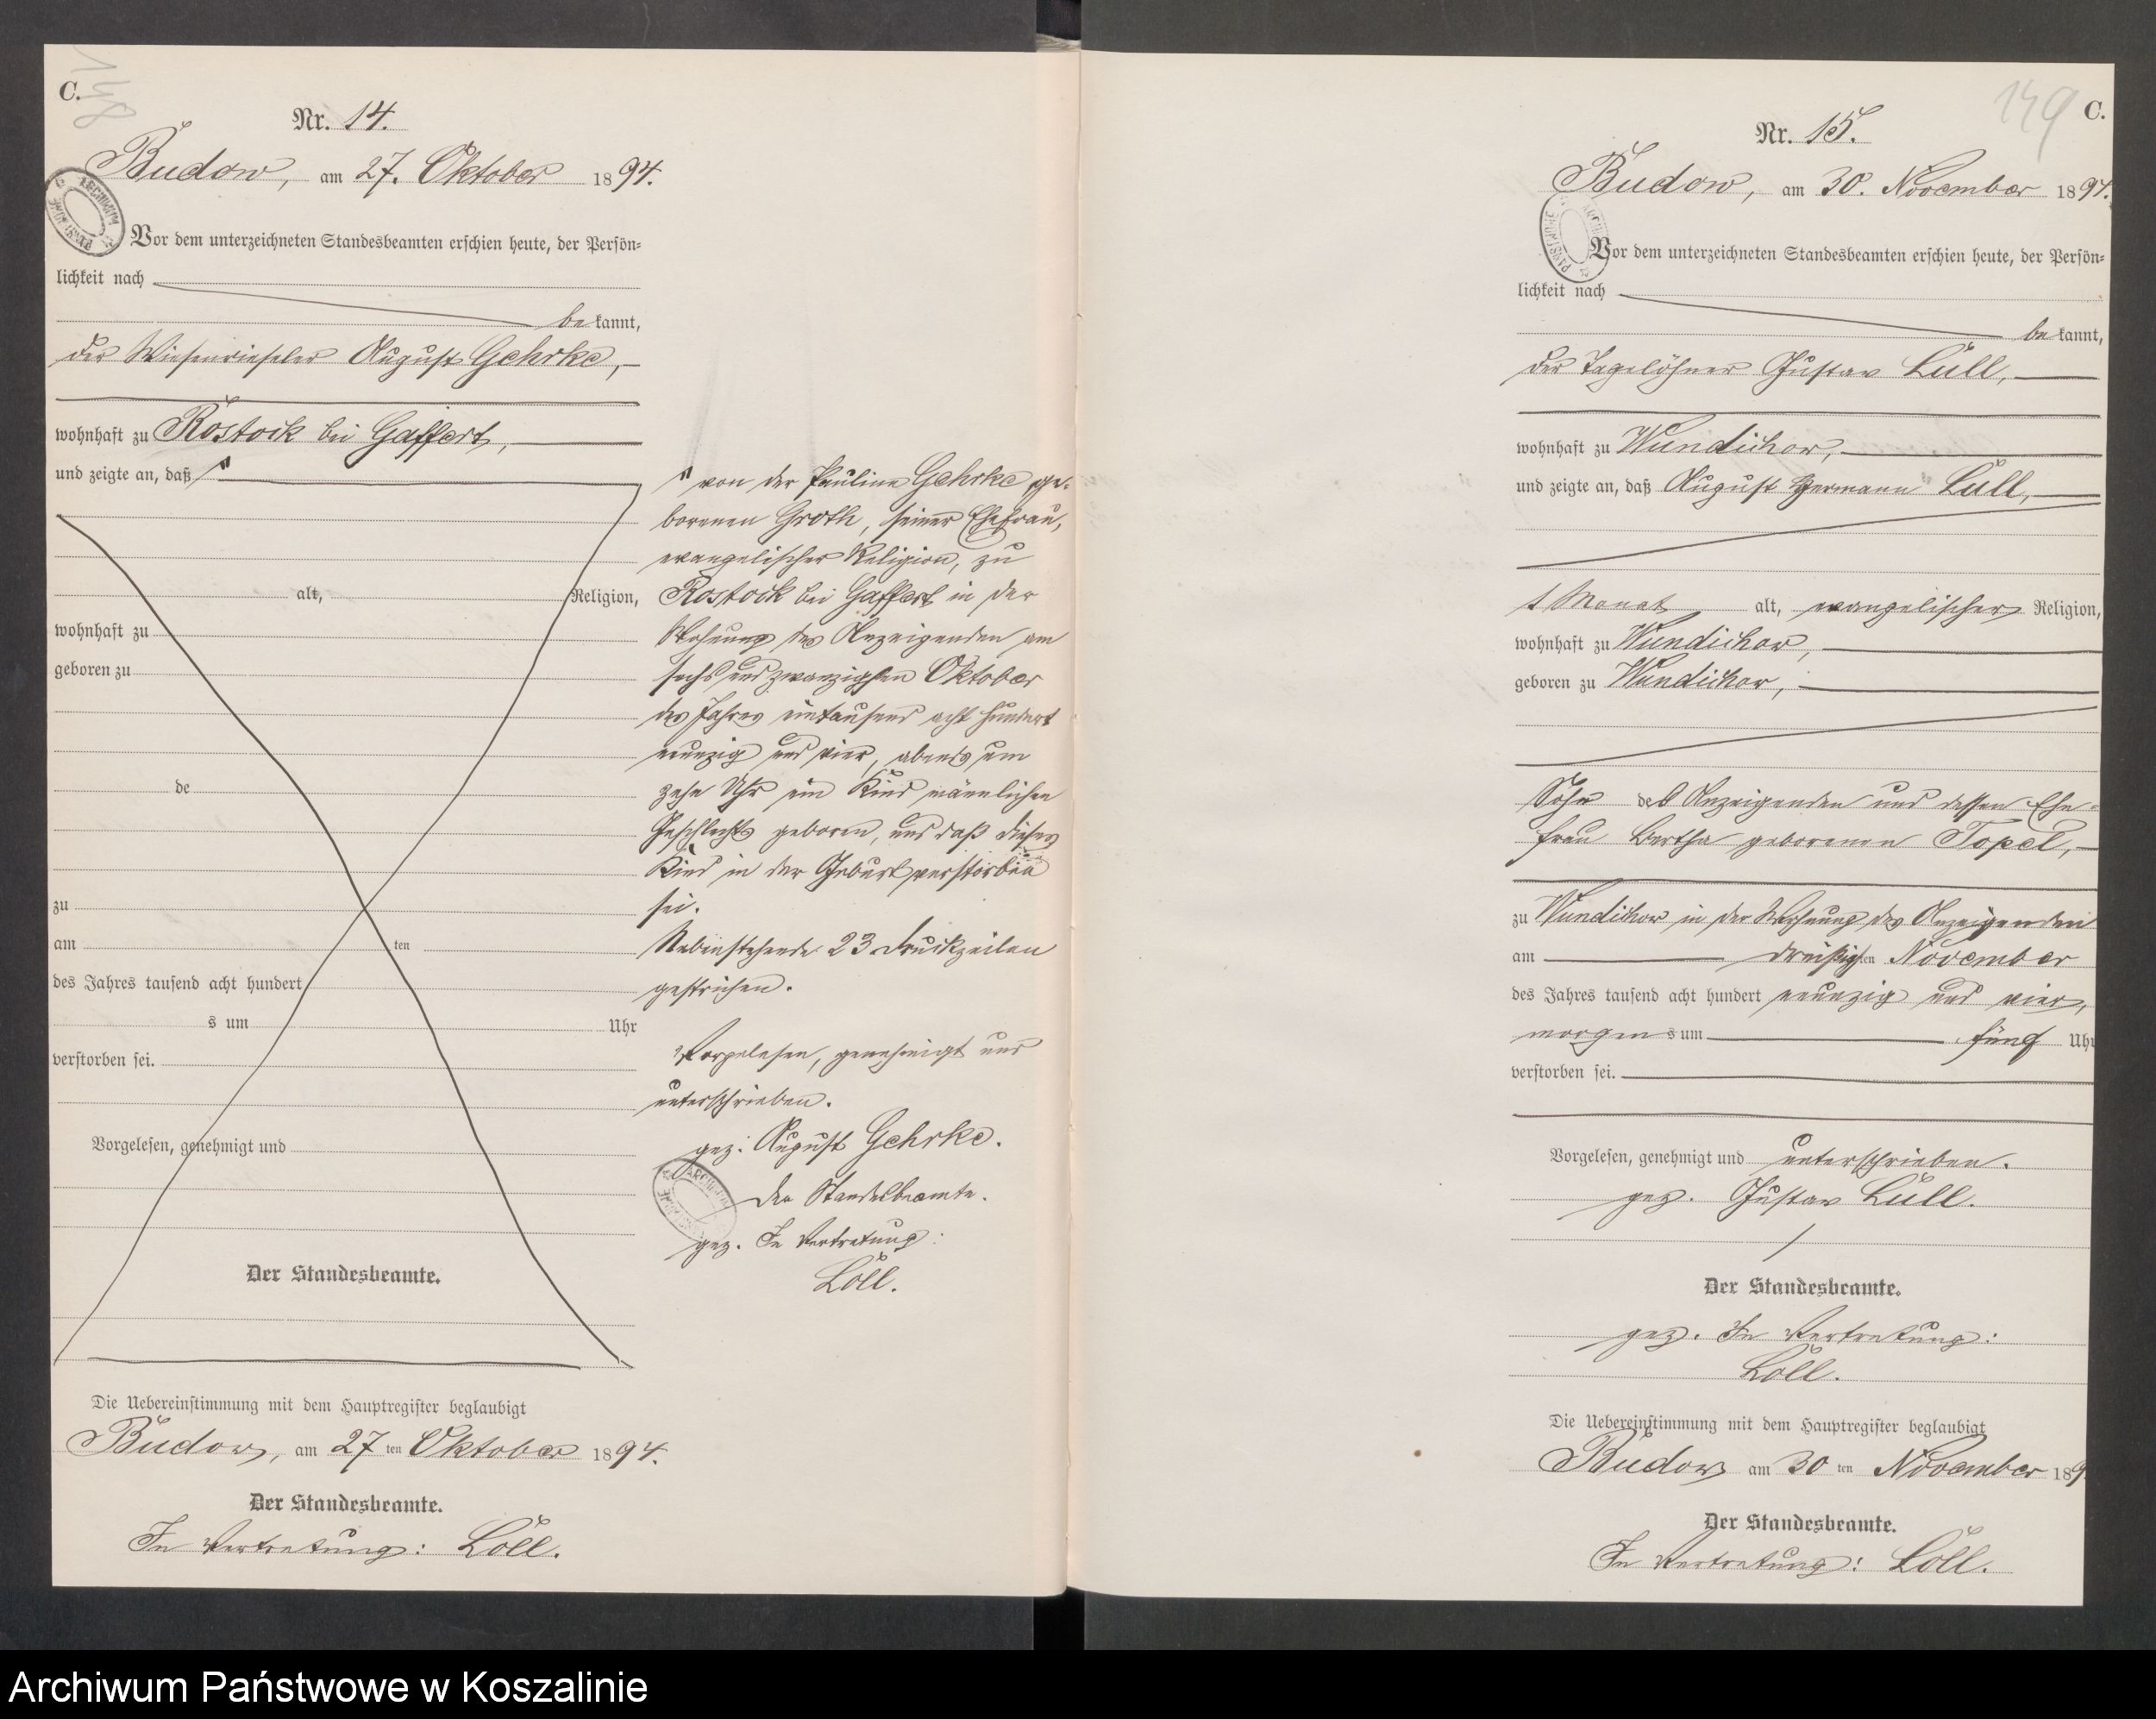 C.
148
Nr. 14.
Budow, am 27. Oktober 1894.
Vor dem unterzeichneten Standesbeamten erschien heute, der Persön-
lichkeit nach
bekannt,
der Wiesenrieseler August Gehrke,
wohnhaft zu Rostock bei Gaffert,
und zeigte an, daß
alt, Religion,
wohnhaft zu
geboren zu
de
zu
am ten
des Jahres tausend acht hundert
s um Uhr
verstorben sei.
Vorgelesen, genehmigt und
Der Standesbeamte.
von der Pauline Gehrke ge-
borenen Groth, seiner Ehefrau,
evangelischer Religion, zu
Rostock bei Gaffert in der
Wohnung des Anzeigenden am
sechs und zwanzigsten Oktober
des Jahres eintausend acht hundert
neunzig und vier, abends um
zehn Uhr ein Kind männlichen
Geschlechts geboren, und daß dieses
Kind in der Geburt verstorben
sei.
Nebenstehende 23 Druckzeilen
gestrichen.
Vorgelesen, genehmigt und
unterschrieben.
gez: August Gehrke.
Der Standesbeamte.
gez. In Vertretung:
Löll.
Die Uebereinstimmung mit dem Hauptregister beglaubigt
Budow, am 27 ten Oktober 1894.
Der Standesbeamte.
In Vertretung: Löll.
149
C.
Nr. 15.
Budow, am 30. November 1894.
Vor dem unterzeichneten Standesbeamten erschien heute, der Persön-
lichkeit nach
bekannt,
der Tagelöhner Gustav Lüll,
wohnhaft zu Wundichow,
und zeigte an, daß August Hermann Lüll,
1 Monat alt, evangelischer Religion,
wohnhaft zu Wundichow,
geboren zu Wundichow,
Sohn des Anzeigenden und dessen Ehe-
frau Bertha geborenen Topel,
zu Wundichow in der Wohnung des Anzeigenden
am dreißigsten November
des Jahres tausend acht hundert neunzig und vier,
morgens um fünf Uhr
verstorben sei.
Vorgelesen, genehmigt und unterschrieben.
gez. Gustav Lüll.
Der Standesbeamte.
gez. In Vertretung:
Löll.
Die Uebereinstimmung mit dem Hauptregister beglaubigt
Budow am 30 ten November 189
Der Standesbeamte.
In Vertretung: Löll.
Archiwum Państwowe w Koszalinie